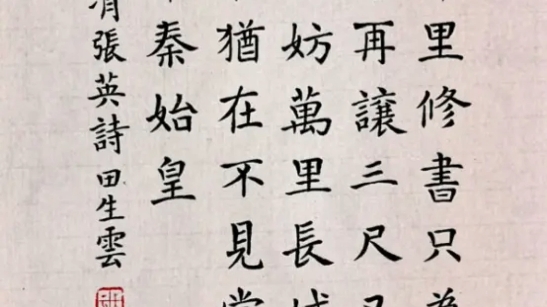 里修書只為
再讓三尺又
妨萬里長城
猶在不見當
秦始皇
清張英詩田生雲